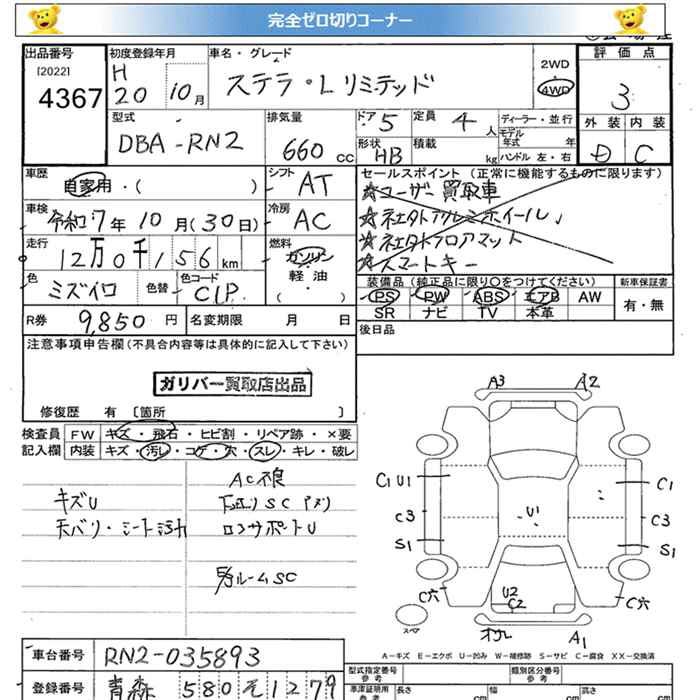 完全ゼロ切りコーナー
出品番号
[2022]
4367
初度登録年月
H
20 10月
車名・グレード
ステラ・Lリミテッド
2WD
4WD
評価点
3
外装 内装
D C
型式
DBA-RN2
排気量
660 cc
ドア 5
定員 4 人
形状 HB
積載 kg
ディーラー・並行
モデル年式 年
ハンドル 左・右
車歴
自家用・( )
シフト AT
車検
令和7年10月(30日)
冷房 AC
走行
12万0千156km
燃料
ガソリン
軽油
( )
色
ミズイロ
色替
色コード
C1P
R券 9,850円
名変期限 月 日
セールスポイント (正常に機能するものに限ります)
☆ユーザー買取車
☆社外アルミホイール
☆社外フロアマット
☆スマートキー
装備品 (純正品に限り○をつけてください)
PS PW ABS エアB AW
SR ナビ TV 本革
新車保証書
有・無
後日品
注意事項申告欄(不具合内容等は具体的に記入して下さい)
ガリバー買取店出品
修復歴 有 〔箇所 〕
検査員記入欄
FW キズ・飛石・ヒビ割・リペア跡・×要
内装 キズ・汚レ・コゲ・穴・スレ・キレ・破レ
キズU
天バリ・シート汚れ
AC不良
下廻りSC
コアサポートU
ルームSC
A3 A2
C1 U1 C1
C3 C3
S1 S1
U1
C穴 C穴
U2
C2
A1
スペア
A-キズ E-エクボ U-凹み W-補修跡 S-サビ C-腐食 XX-交換済
車台番号 RN2-035893
登録番号 青森 580 そ 1279
型式指定番号 参考
類別区分番号 参考
車庫証明用 参考
長さ cm
幅 cm
高さ cm